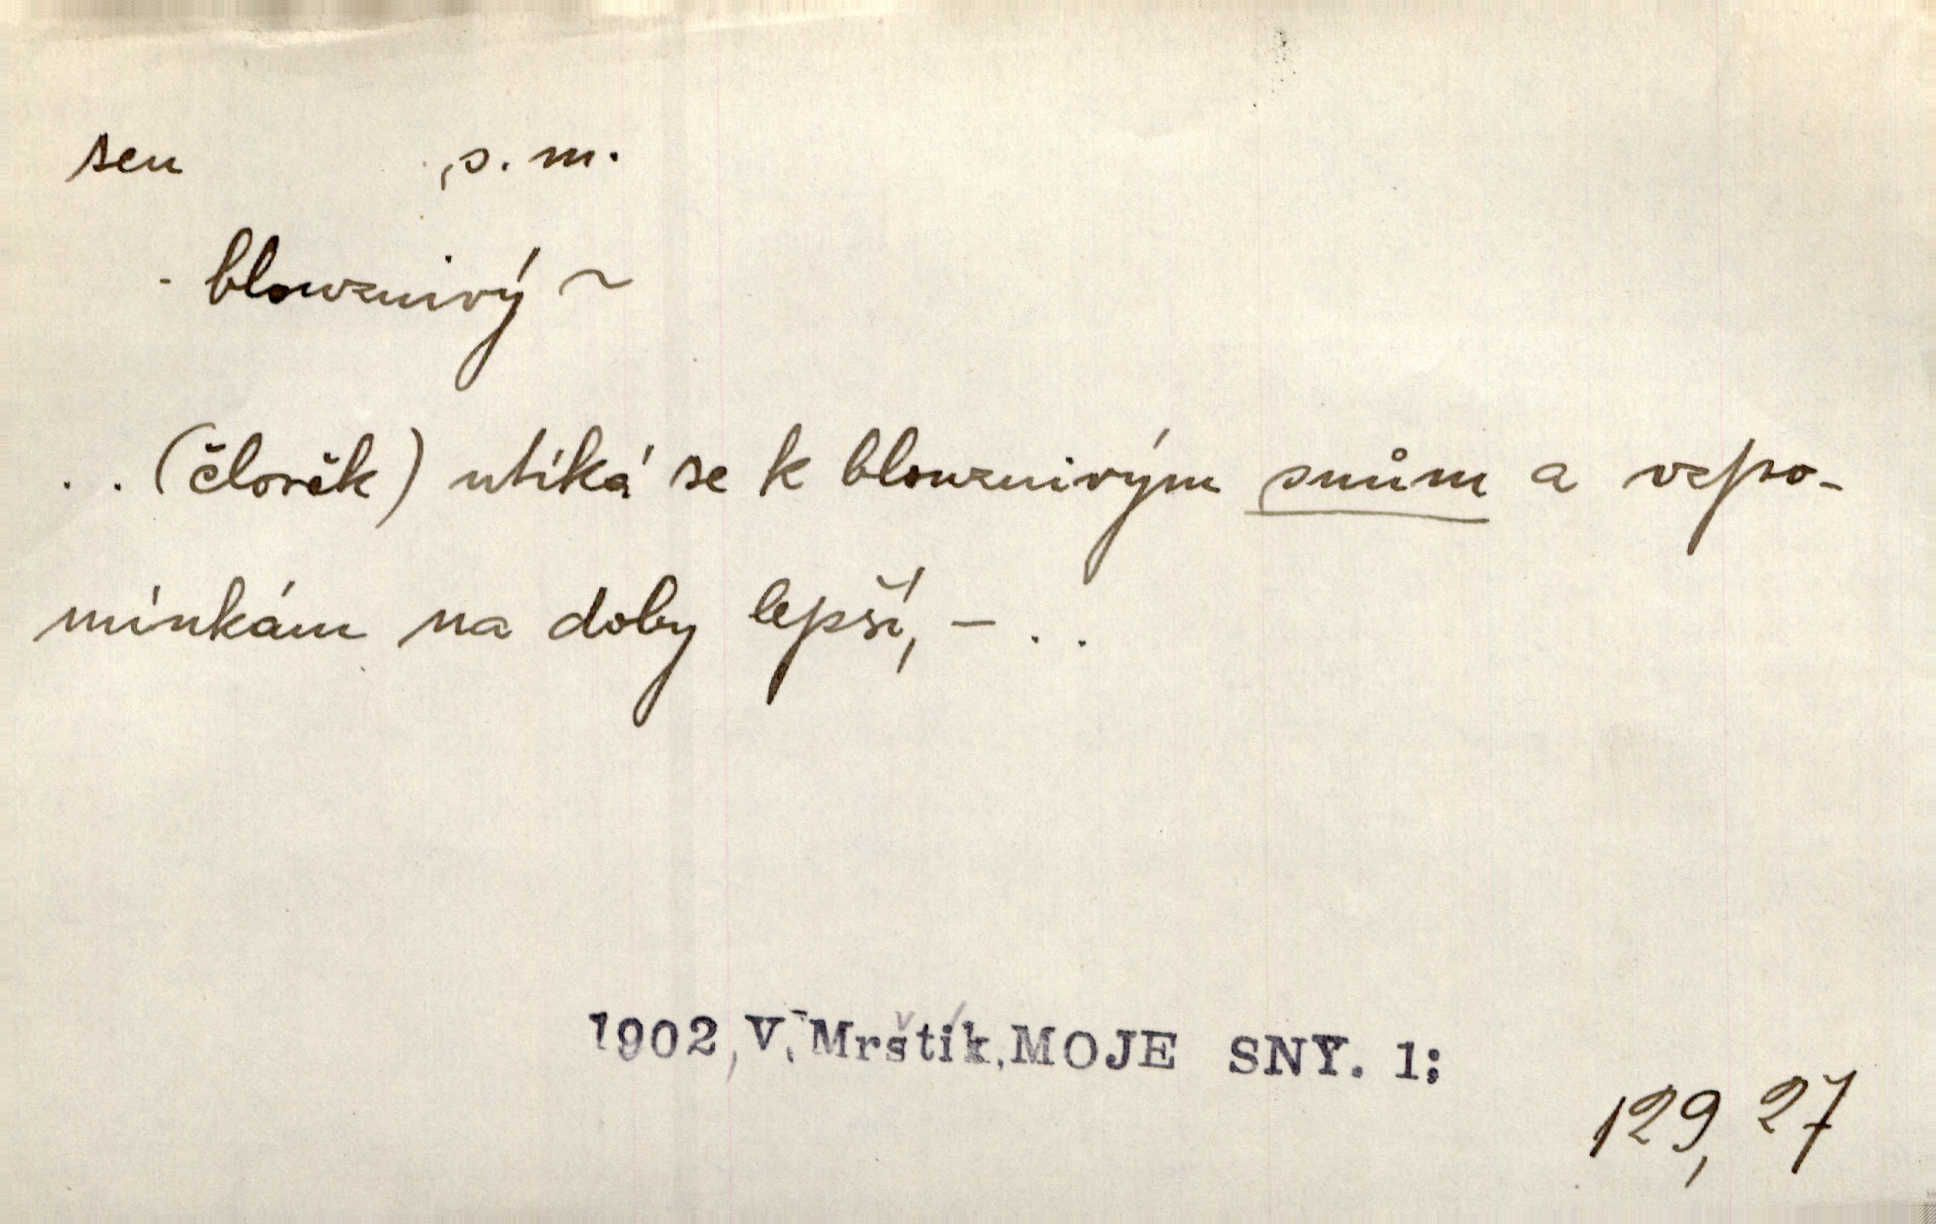 sen , s. m.
- blouznivý ~
. . (člověk) utíká se k blouznivým snům a vzpo-
mínkám na doby lepší, – . .
1902, V. Mrštík, MOJE SNY. 1;
129, 27